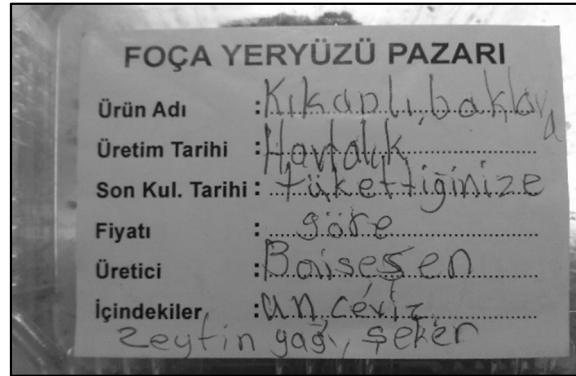 FOÇA YERYÜZÜ PAZARI
Ürün Adı : Kıkanlı baklava
Üretim Tarihi : Haftalık
Son Kul. Tarihi : tükettiğinize
Fiyatı : göre
Üretici :
İçindekiler : un ceviz
zeytin yağı, şeker